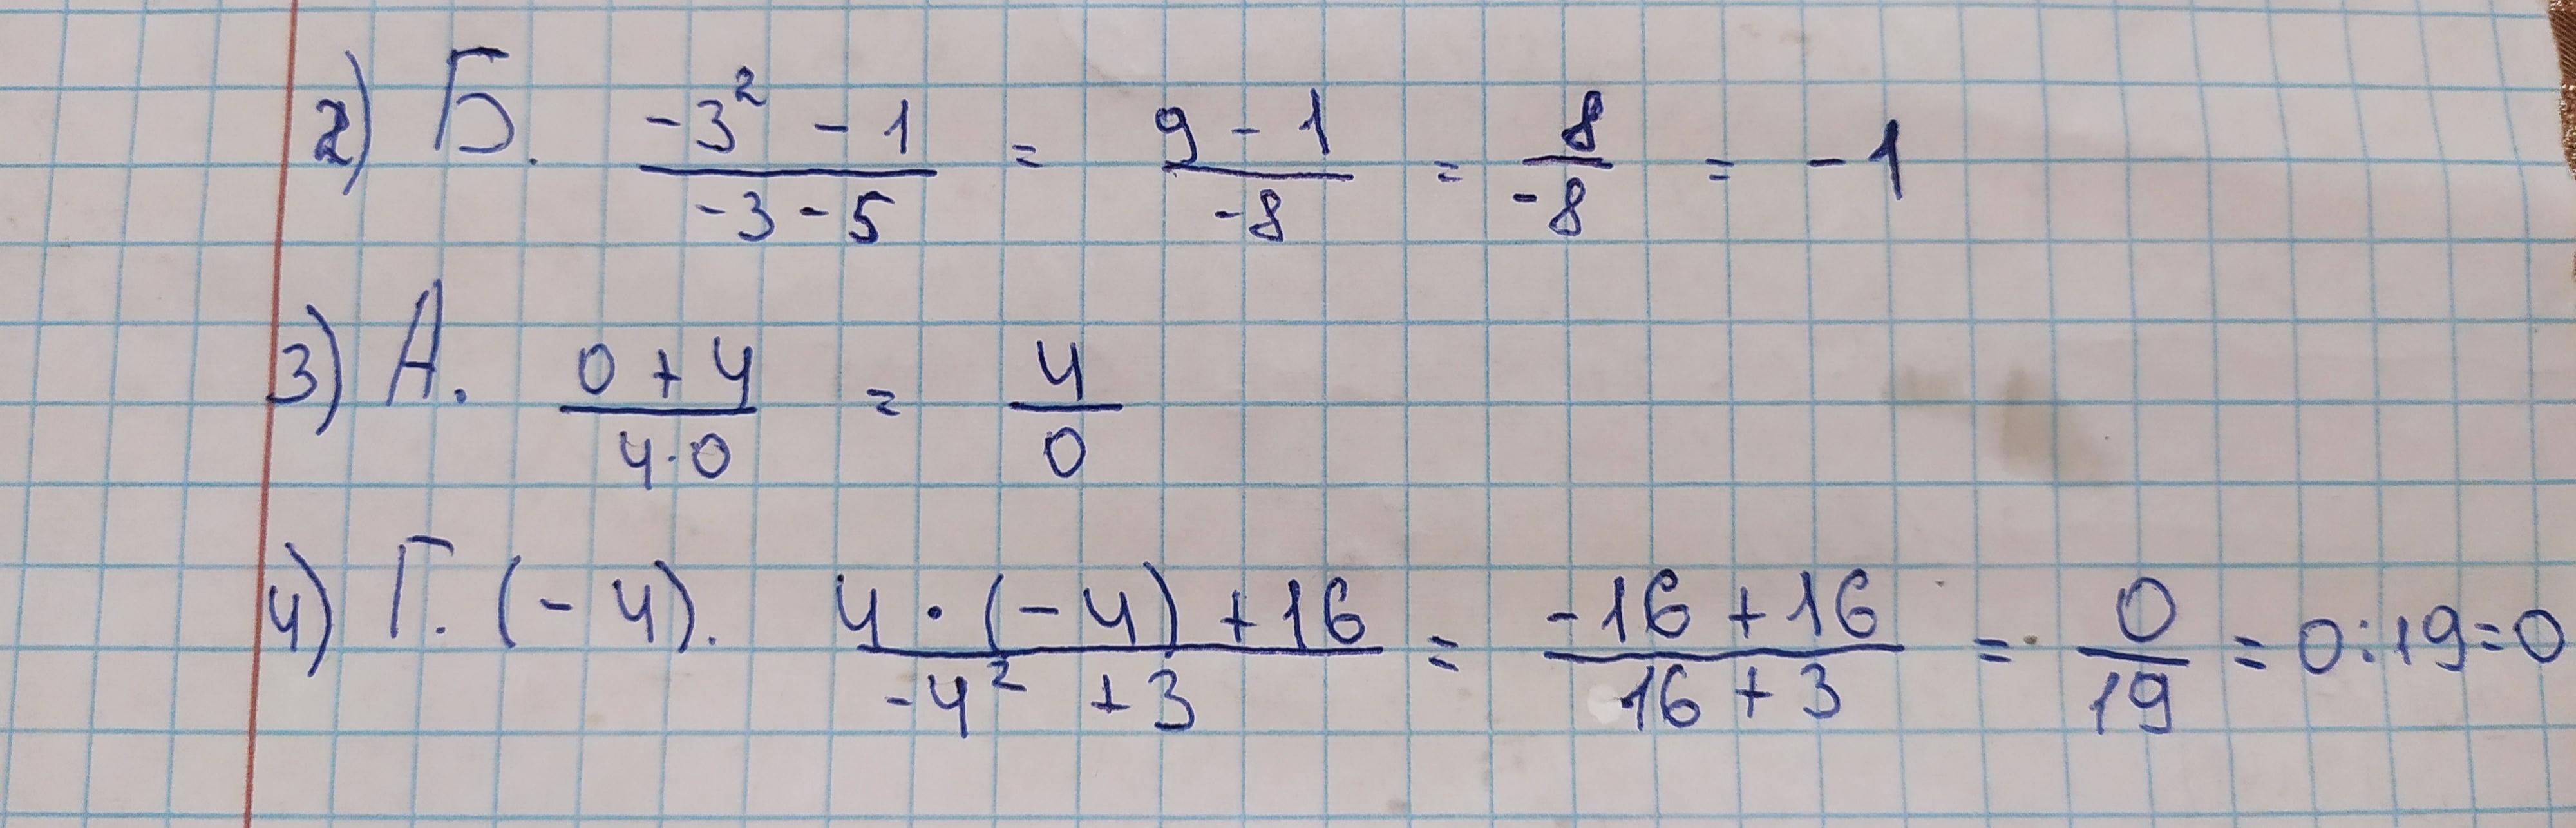 2) Б. (-3² - 1)/(-3 - 5) = (9 - 1)/(-8) = 8/(-8) = -1
3) А. (0 + 4)/(4·0) = 4/0
4) Г. (-4). (4·(-4) + 16)/(-4² + 3) = (-16 + 16)/(16 + 3) = 0/19 = 0:19=0